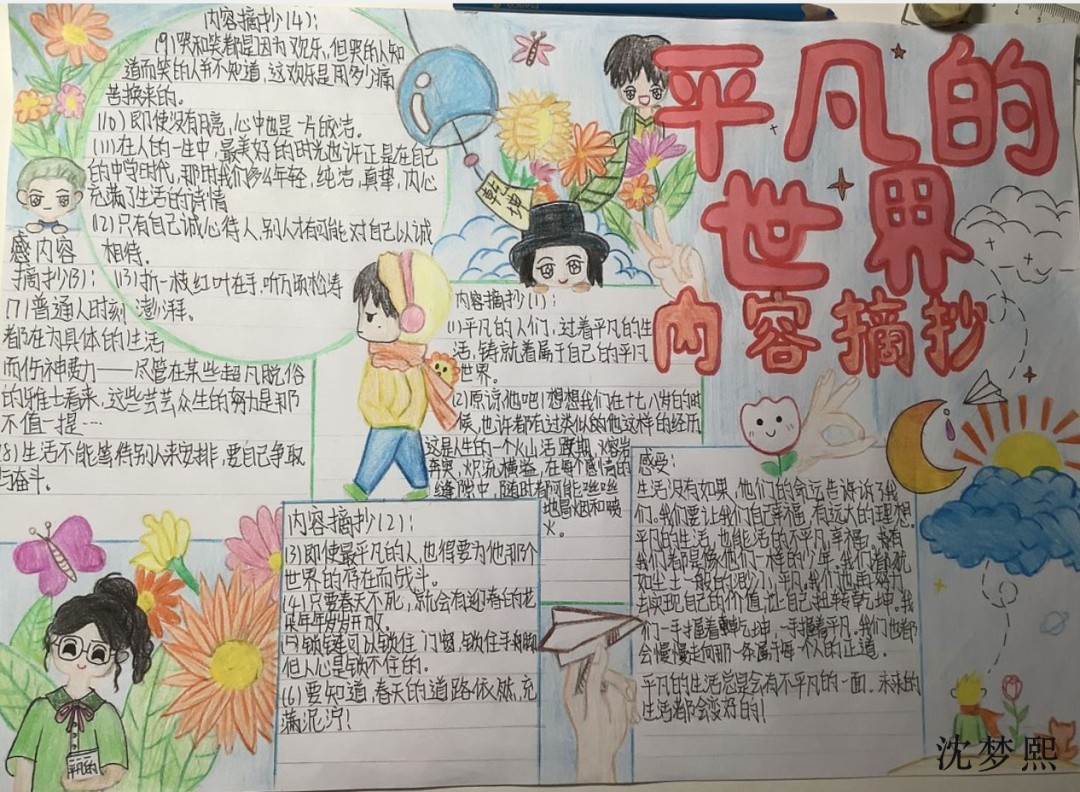 平凡的
世界
内容摘抄
内容摘抄(4):
(9)哭和笑都是因为欢乐,但哭的人知
道而笑的人并不知道,这欢乐是用多少痛
苦换来的。
(10)即使没有月亮,心中也是一片皎洁。
(11)在人的一生中,最美好的时光也许正是在自己
的中学时代,那时我们多么年轻,纯洁,真挚,内心
充满了生活的诗情
(12)只有自己诚心待人,别人才有可能对自己以诚
相待。
(13)折一枝红叶在手,听万顷松涛
澎湃。
感内容
摘抄(3):
(7)普通人时刻
都在为具体的生活
而伤神费力——尽管在某些超凡脱俗
的雅士看来,这些芸芸众生的努力是那
不值一提…
(8)生活不能等待别人来安排,要自己争取
与奋斗。
内容摘抄(1):
(1)平凡的人们,过着平凡的生
活,铸就着属于自己的平凡
世界。
(2)原谅他吧!想想我们在十七八岁的时
候,也许都有过类似的他这样的经历
这是人生的一个火山活跃期,熔岩
奔突,炽流横溢,在每个感情的
缝隙中,随时都可能咝咝
地冒烟和喷
火。
内容摘抄(2):
(3)即使最平凡的人,也得要为他那个
世界的存在而战斗。
(4)只要春天不死,就会有迎春的花
朵年年岁岁开放。
(5)锁链可以锁住门窗,锁住手和脚
但人心是锁不住的。
(6)要知道,春天的道路依然充
满泥泞!
感受:
生活没有如果,他们的命运告诉诉了我
们。我们要让我们自己幸福,有远大的理想。
平凡的生活,也能活的不平凡,幸福。或有
我们都是像他们一样的少年。我们看似
如尘土一般的渺小,平凡,我们也要努力
去实现自己的价值,让自己扭转乾坤。我
们一手握着乾坤,一手握着平凡。我们也都
会慢慢走向那一条属于每个人的正道。
平凡的生活总是会有不平凡的一面,未来的
生活都会变好的!
平凡的
沈梦熙